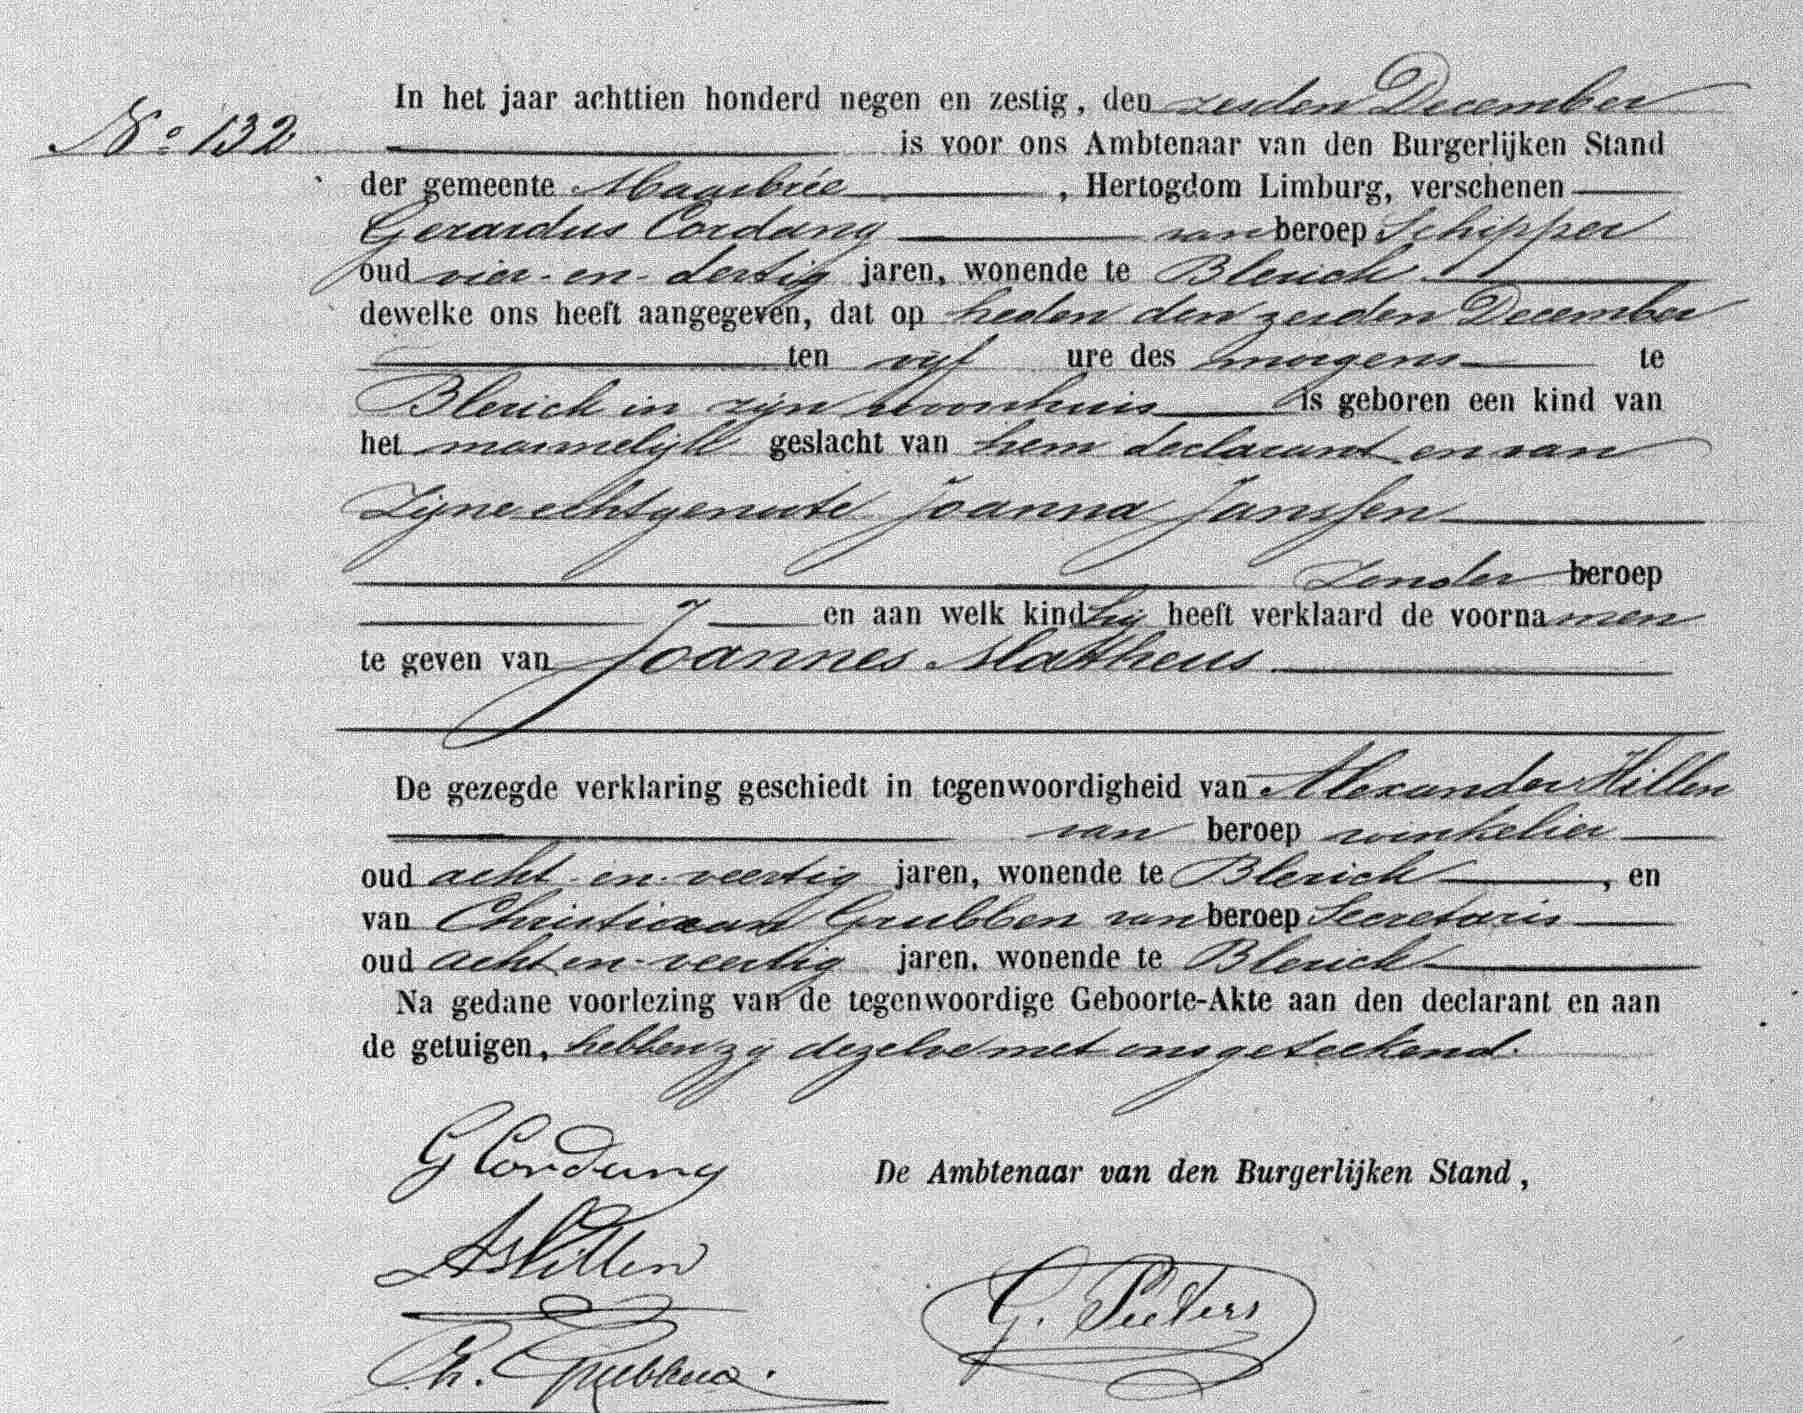 In het jaar achttien honderd negen en zestig, den zesden December
N° 132 is voor ons Ambtenaar van den Burgerlijken Stand
der gemeente Maasbrée, Hertogdom Limburg, verschenen
Gerardus Cordang van beroep Schipper
oud vier-en-dertig jaren, wonende te Blerick
dewelke ons heeft aangegeven, dat op heden den zesden December
ten vijf ure des morgens te
Blerick in zijn woonhuis is geboren een kind van
het mannelijk geslacht van hem declarant en van
Zijne echtgenoote Joanna Janssen
Zonder beroep
en aan welk kind hij heeft verklaard de voornamen
te geven van Joannes Mattheus
De gezegde verklaring geschiedt in tegenwoordigheid van Alexander Hillen
van beroep winkelier
oud acht-en-veertig jaren, wonende te Blerick, en
van Christiaan Grubben van beroep Secretaris
oud acht en-veertig jaren, wonende te Blerick
Na gedane voorlezing van de tegenwoordige Geboorte-Akte aan den declarant en aan
de getuigen, hebben zij dezelve met ons geteekend.
G Cordang
De Ambtenaar van den Burgerlijken Stand,
A Hillen
G. Peeters
Ch. Grubben.